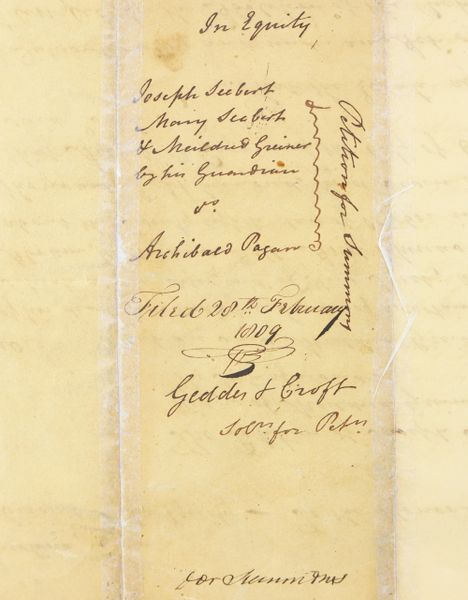 In Equity
Joseph Seebert
Mary Seebert
& Meildred Greiner
by his Guardian
vs.
Archibald Pagan
Petition for Summons
Filed 28th February
1809
Geddes & Croft
Solrs for Petrs
for Summons